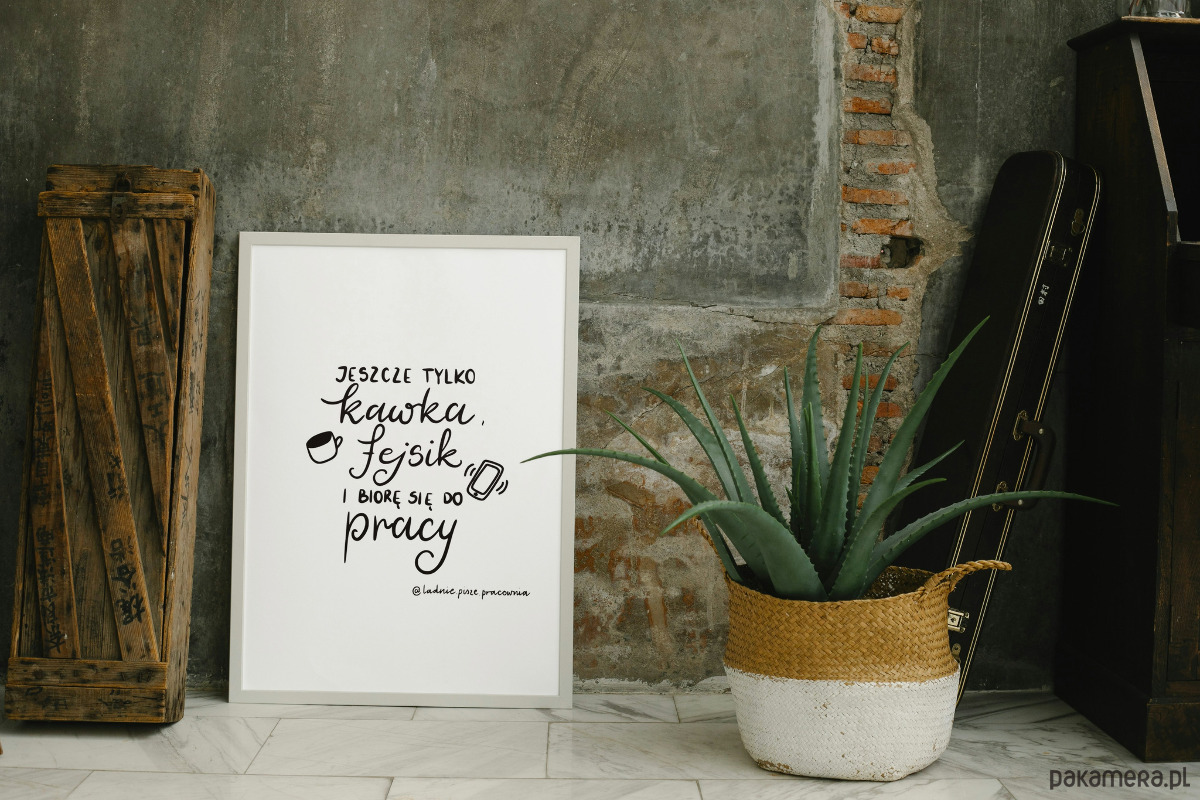 JESZCZE TYLKO
kawka,
fejsik
I BIORĘ SIĘ DO
pracy
@ladnie.pisze.pracownia
pakamera.pl